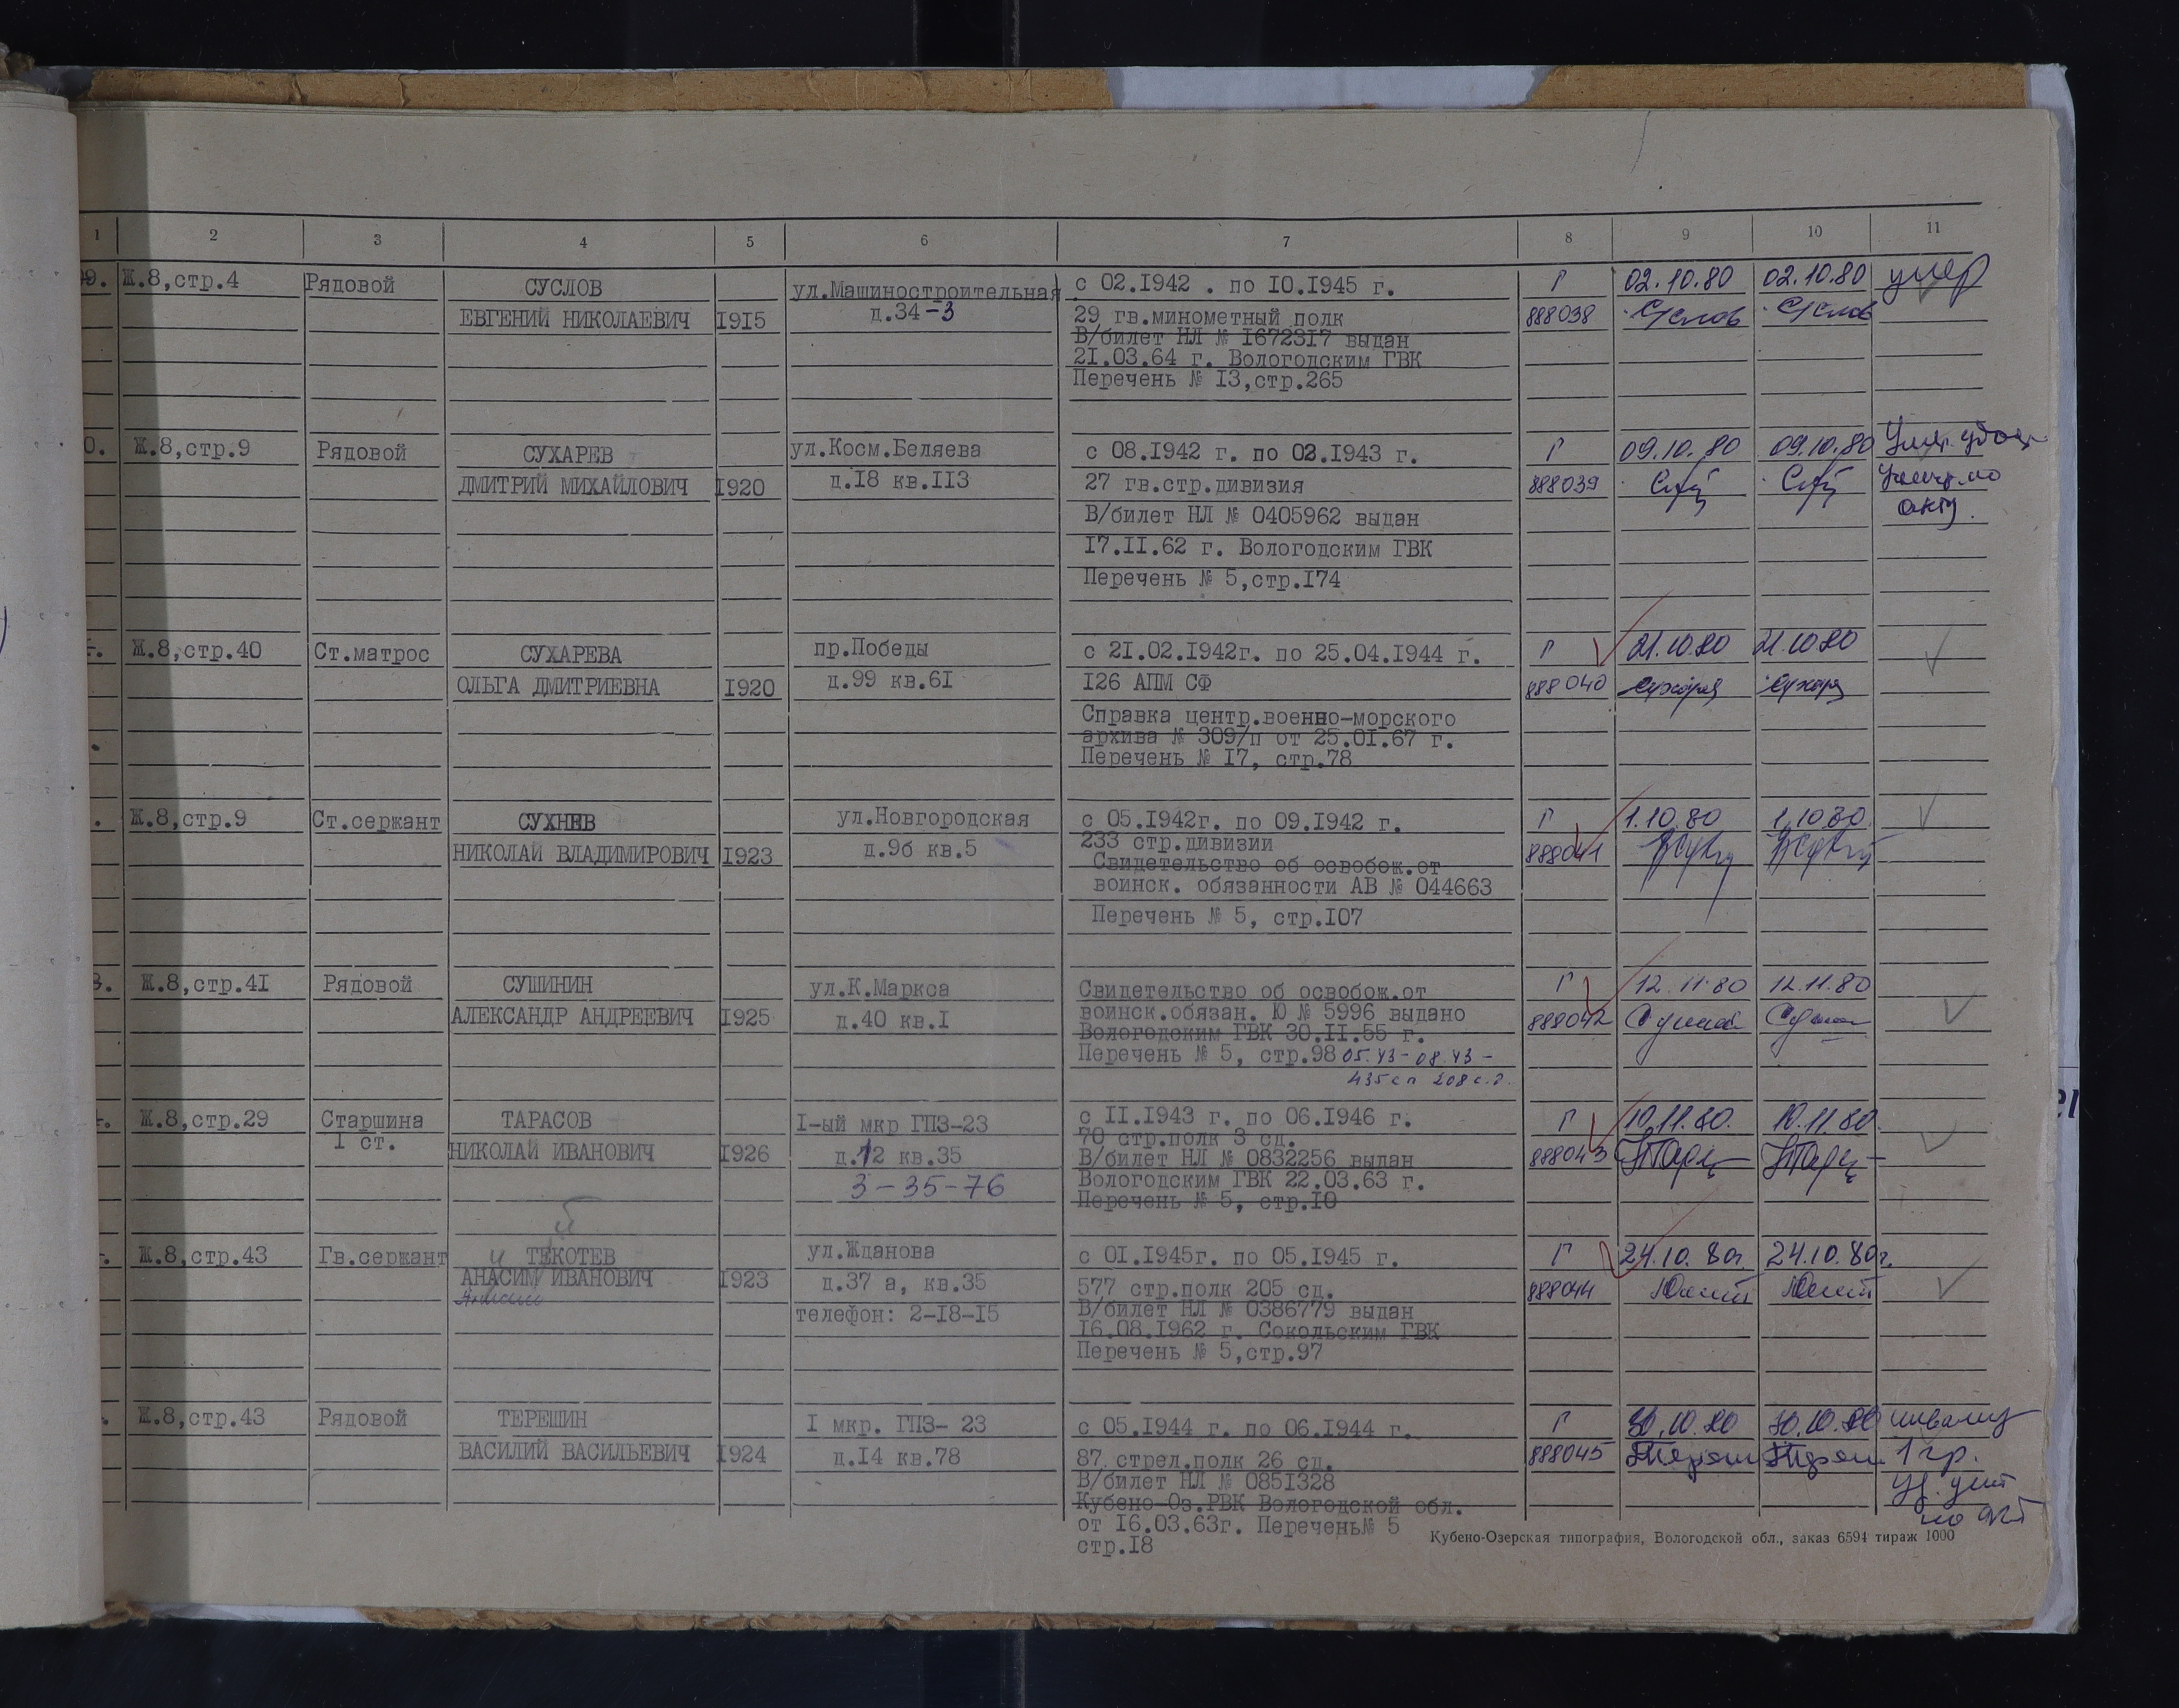 1 2 3 4 5 6 7 8 9 10 11
99. Ж.8,стр.4 Рядовой СУСЛОВ ул.Машиностроительная с 02.1942 . по 10.1945 г. Г 02.10.80 02.10.80 умер
ЕВГЕНИЙ НИКОЛАЕВИЧ 1915 д.34-3 29 гв.минометный полк 888038 Суслов Суслов
В/билет НЛ № 1672317 выдан
21.03.64 г. Вологодским ГВК
Перечень № 13,стр.265
0. Ж.8,стр.9 Рядовой СУХАРЕВ ул.Косм.Беляева с 08.1942 г. по 02.1943 г. Г 09.10.80 09.10.80
ДМИТРИЙ МИХАЙЛОВИЧ 1920 д.18 кв.113 27 гв.стр.дивизия 888039
В/билет НЛ № 0405962 выдан акту.
17.11.62 г. Вологодским ГВК
Перечень № 5,стр.174
Ж.8,стр.40 Ст.матрос СУХАРЕВА пр.Победы с 21.02.1942г. по 25.04.1944 г. Г 21.10.80 21.10.80
ОЛЬГА ДМИТРИЕВНА 1920 д.99 кв.61 126 АПМ СФ 888040
Справка центр.военно-морского
архива № 309/п от 25.01.67 г.
Перечень № 17, стр.78
Ж.8,стр.9 Ст.сержант СУХНЕВ ул.Новгородская с 05.1942г. по 09.1942 г. Г 1.10.80 1.10.80.
НИКОЛАЙ ВЛАДИМИРОВИЧ 1923 д.9б кв.5 233 стр.дивизии 888041
Свидетельство об освобож.от
воинск. обязанности АВ № 044663
Перечень № 5, стр.107
3. Ж.8,стр.41 Рядовой СУШИНИН ул.К.Маркса Свидетельство об освобож.от Г 12.11.80 12.11.80
АЛЕКСАНДР АНДРЕЕВИЧ 1925 д.40 кв.1 воинск.обязан. Ю № 5996 выдано 888042
Вологодским ГВК 30.11.55 г.
Перечень № 5, стр.98 05.43-08.43-
435сп 208с.д.
Ж.8,стр.29 Старшина ТАРАСОВ 1-ый мкр ГПЗ-23 с 11.1943 г. по 06.1946 г. Г 10.11.80. 10.11.80.
1 ст. 70 стр.полк 3 сд.
НИКОЛАЙ ИВАНОВИЧ 1926 д.12 кв.35 В/билет НЛ № 0832256 выдан 888043
3-35-76 Вологодским ГВК 22.03.63 г.
Перечень № 5, стр.10
Ж.8,стр.43 Гв.сержант ТЕКОТЕВ ул.Жданова с 01.1945г. по 05.1945 г. Г 24.10.80г. 24.10.80г.
АНАСИМ ИВАНОВИЧ 1923 д.37 а, кв.35 577 стр.полк 205 сд. 888044
телефон: 2-18-15 В/билет НЛ № 0386779 выдан
16.08.1962 г. Сокольским ГВК
Перечень № 5,стр.97
Ж.8,стр.43 Рядовой ТЕРЕШИН 1 мкр. ГПЗ- 23 с 05.1944 г. по 06.1944 г. Г 30.10.80 30.10.80 инвалид
ВАСИЛИЙ ВАСИЛЬЕВИЧ 1924 д.14 кв.78 87 стрел.полк 26 сд. 888045 1 гр.
В/билет НЛ № 0851328
Кубено-Оз.РВК Вологодской обл.
от 16.03.63г. Перечень№ 5
стр.18
Кубено-Озерская типография, Вологодской обл., заказ 6594 тираж 1000